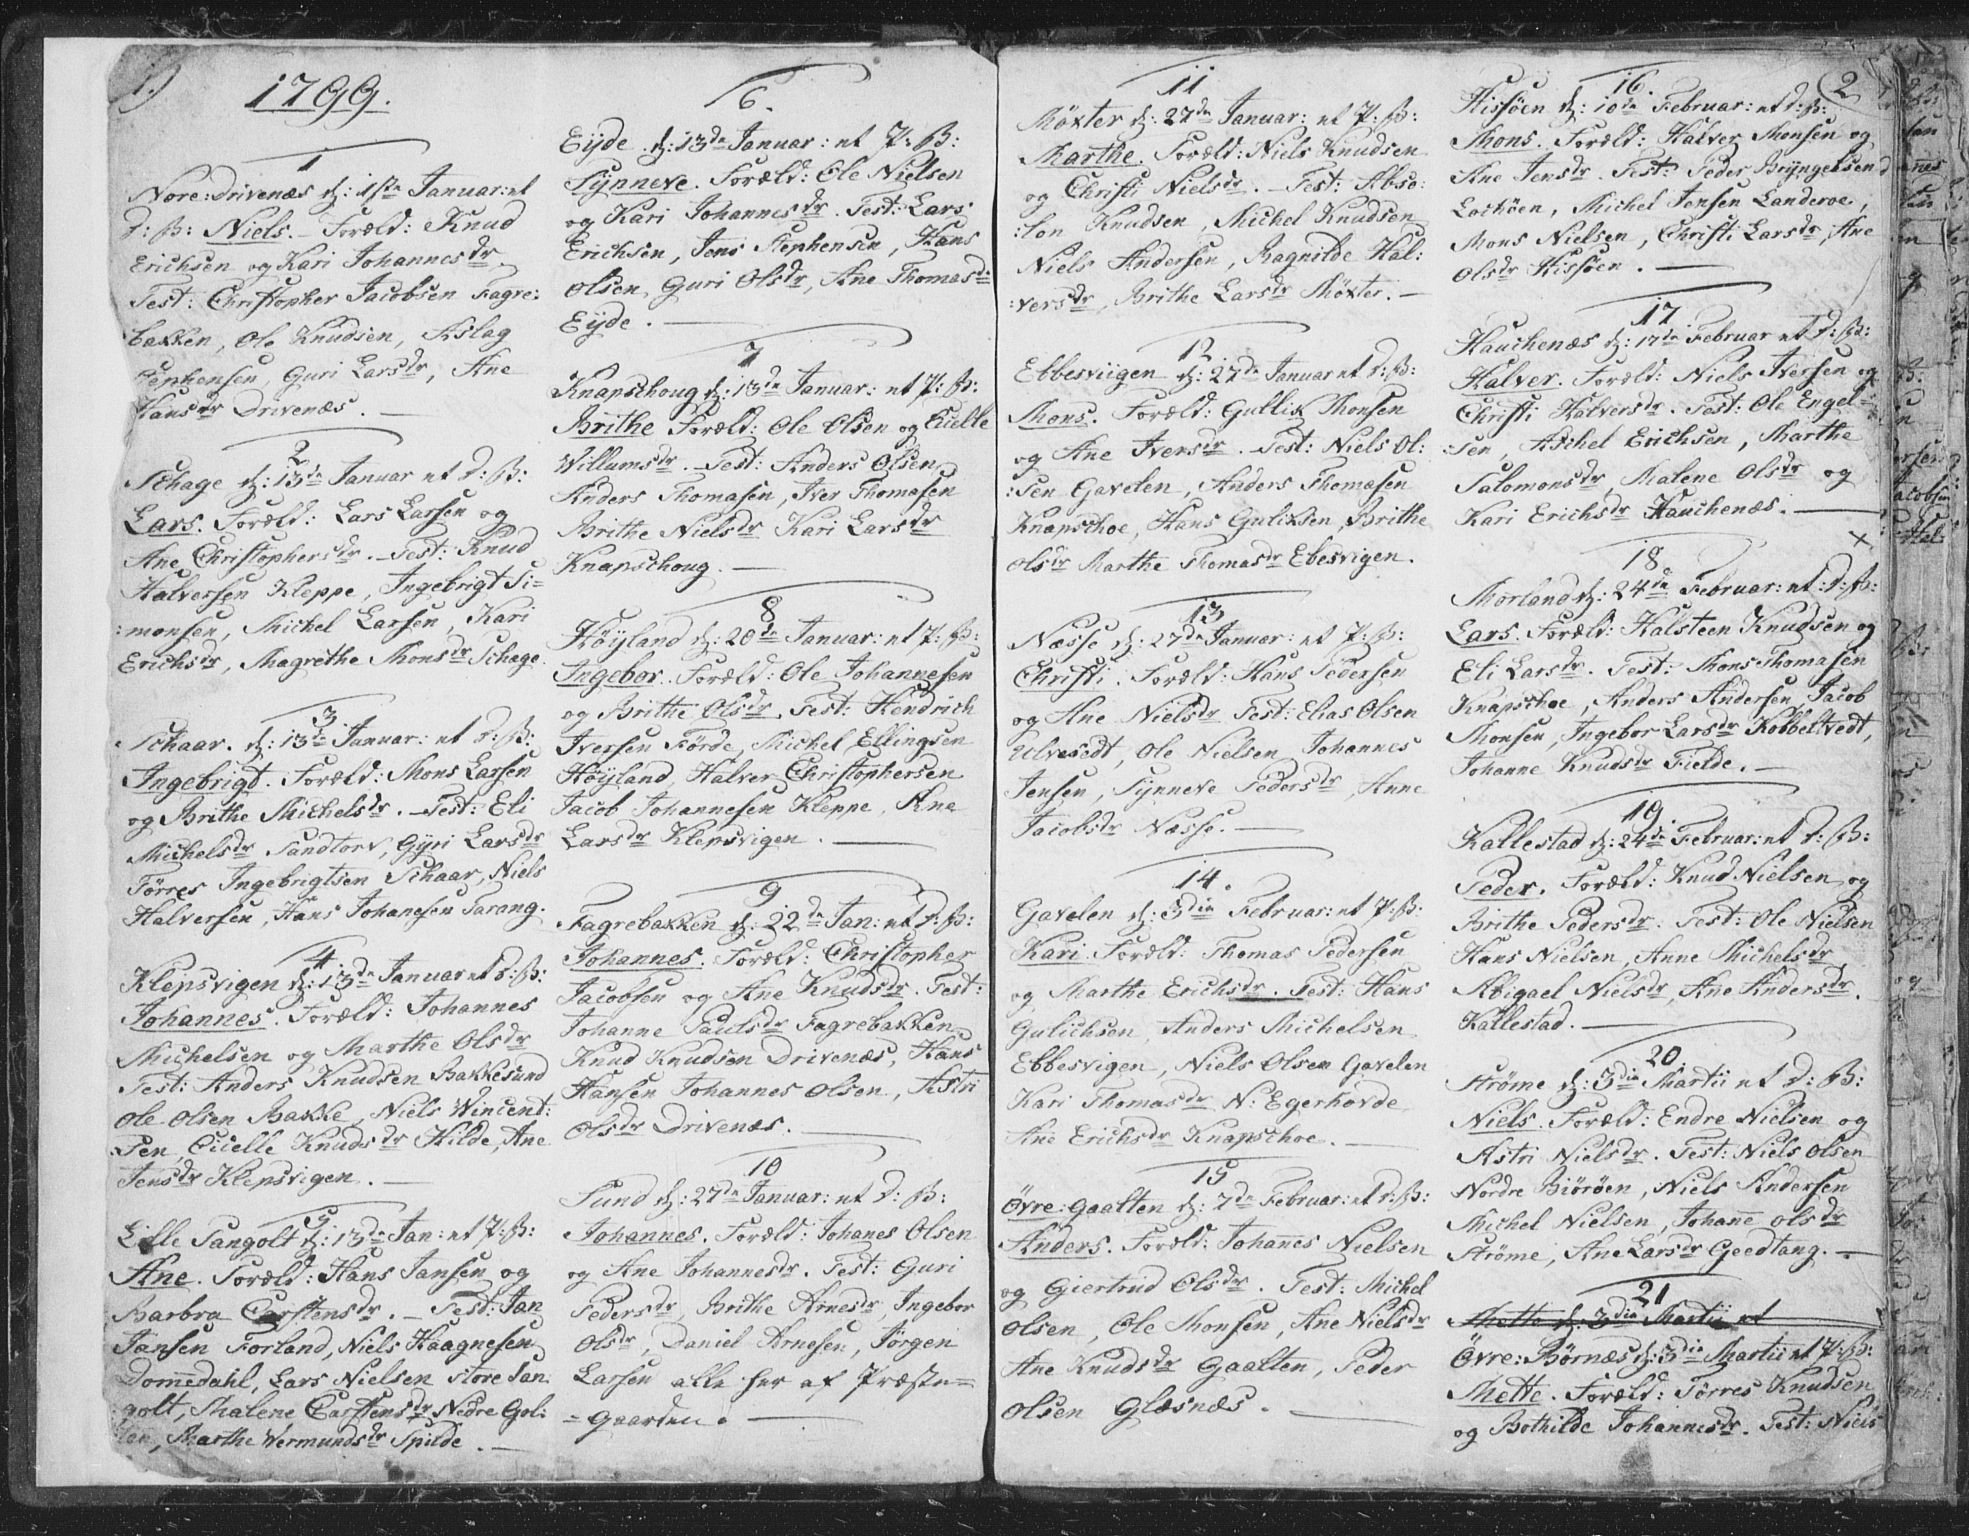 1.)
1799.
1
Nore: Drivenæs d: 1ste Januar: et
D: B: Niels. Foræld: Knud
Erichsen og Kari Johannesdr
Test: Christopher Jacobsen Fagre:
bakken, Ole Knudsen, Aslag
Stephensen, Guri Larsdr, Ane
Hansdr Drivenæs.
2
Schage d: 13de Januar et D: B:
Lars. Foræld: Lars Larsen og
Ane Christophersdr. Test: Knud
Halversen Kleppe, Ingebrigt Si=
:monsen, Michel Larsen, Kari
Erichsdr, Magrethe Monsdr Schage.
3
Schaar. d: 13de Januar: et D: B:
Ingebrigt. Foræld: Mons Larsen
og Brithe Michelsdr. Test: Eli
Michelsdr Sandtorv, Gÿri Larsdr
Törres Ingebrigtsen Schaar, Niels
Halversen, Hans Johanesen Tarang.
4.
Klepsvigen d: 13de Januar et D: B:
Johannes. Foræld: Johannes
Michelsen og Marthe Olsdr
Test: Anders Knudsen Bakkesund
Ole Olsen Bakke, Niels Wincent:
Sen, Cicelle Knudsdr Hilde, Ane
Jensdr Klepsvigen.
5
Lille Sangolt d: 13de Jan: et P: B:
Ane. Foræld: Hans Jansen og
Barbra Carstensdr. Test: Jan
Jansen Forland, Niels Haagnesen
Domedahl, Lars Nielsen Store San
golt, Malene Carstensdr Nedre Gol:
ten, Marthe Wermundsdr Spilde.
6.
Eÿde d: 13de Januar: et P: B:
Sÿnneve. Foræld: Ole Nielsen
og Kari Johannesdr. Test: Lars
Erichsen, Jens Stephensen, Hans
Olsen, Guri Olsdr, Ane Thomasdr
Eÿde.
7
Knapschoug d: 13de Januar: et P: B:
Brithe Foræld: Ole Olsen og Cicelle
Willumsdr. Test: Anders Olsen,
Anders Thomasen, Iver Thomasen
Brithe Nielsdr Kari Larsdr
Knapschoug.
8
Höÿland d: 20de Januar: et P: B:
Ingebor. Foræld: Ole Johannesen
og Brithe Olsdr. Test: Hendrich
Iversen Förde, Michel Ellingsen
Höÿland, Halver Christophersen
Jacob Johannesen Kleppe, Ane
Larsdr Klepsvigen.
9
Fagrebakken d: 22de Jan: et D: B:
Johannes. Foræld: Christopher
Jacobsen og Ane Knudsdr. Test:
Johanne Paulsdr Fagrebakken,
Knud Knudsen Drivenæs, Hans
Hansen Johannes Olsen, Astri
Olsdr Drivenæs.
10
Sund d: 27de Januar: et D: B:
Johannes. Foræld: Johanes Olsen
og Ane Johannesdr. Test: Guri
Pedersdr, Brithe Arnesdr, Ingebor
Olsdr, Daniel Arnesen, Jörgen
Larsen alle her af Præste=
=gaarden.
11
Möxter d: 27de Januar: et P: B:
Marthe. Foræld: Niels Knudsen
og Christi Nielsdr. Test: Abso:
:lon Knudsen, Michel Knudsen
Niels Andersen, Ragnilde Hal:
:versdr, Brithe Larsdr Möxter.
12
Ebbesviigen d: 27de Januar et D: B:
Mons. Foræld: Gullix Monsen
og Ane Iversdr. Test: Niels Ol:
:sen Gavelen, Anders Thomasen
Knapschoe, Hans Gulixsen, Brithe
Olsdr Marthe Thomasdr Ebesvigen.
13
Næsse d: 27de Januar: et P: B:
Christi. Foræld: Hans Pedersen
og Ane Nielsdr Test: Elias Olsen
Ulvesedt, Ole Nielsen, Johannes
Jensen, Sÿnneve Pedersdr, Anne
Jacobsdr Næsse.
14.
Gavelen d: 3die Februar: et P: B:
Kari. Foræld: Thomas Pedersen
og Marthe Erichsdr. Test: Hans
Gulichsen, Anders Michelsen
Ebbesvigen, Niels Olsen Gavelen
Kari Thomasdr N: Egerhovde
Ane Erichsdr Knapschoe.
15
Övre: Gaalten d: 7de Februar: et D: B:
Anders. Foræld: Johanes Nielsen
og Giertrud Olsdr. Test: Michel
Olsen, Ole Monsen, Ane Nielsdr
Ane Knudsdr Gaalten, Peder
Olsen Glæsnæs.
2
16.
Hissöen d: 10de Februar: et D: B:
Mons. Foræld: Halver Monsen og
Ane Jensdr. Test: Peder Brÿngelsen
Lochöen, Michel Jensen Landeroe,
Mons Nielsen, Christi Larsdr, Ane
Olsdr Hissöen.
17
Hauchenæs d: 17de Februar et D: B:
Halver. Foræld: Niels Iversen og
Christi Halversdr. Test: Ole Engel=
sen, Aschel Erichsen, Marthe
Salomonsdr, Malene Olsdr og
Kari Erichsdr Hauchenæs.
x
18
Morland d: 24de Februar: et D: B:
Lars. Foræld: Halsteen Knudsen og
Eli Larsdr. Test: Mons Thomasen
Knapschoe, Anders Andersen, Jacob
Monsen, Ingebor Larsdr Kobbeltvedt,
Johanne Knudsdr Fielde.
19.
Kallestad d: 24de Februar: et D: B:
Peder. Foræld: Knud Nielsen og
Brithe Pedersdr. Test: Ole Nielsen
Hans Nielsen, Anne Michelsdr
Abigael Nielsdr, Ane Andersdr.
Kallestad.
20.
Ströme d: 3die Martii et D: B:
Niels. Foræld: Endre Nielsen og
Astri Nielsdr. Test: Niels Olsen
Nordre Biöröen, Niels Andersen
Michel Nielsen, Johane Olsdr
Ströme, Ane Larsdr Geedtang.
21
Mette d: 3die Martii et
Övre: Börnæs d: 3die Martii et P: B:
Mette. Foræld: Törres Knudsen
og Bothilde Johannesdr. Test: Niels